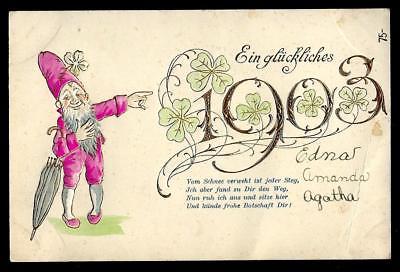 75-
Ein glückliches
1903
Edna
Amanda
Agatha
Vom Schnee verweht ist jeder Steg,
Ich aber fand zu Dir den Weg,
Nun ruh ich aus und sitze hier
Und künde frohe Botschaft Dir!